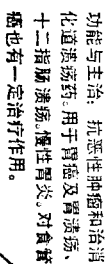 功能与主治：抗恶性肿瘤和治消
化道溃疡药。用于胃癌及胃溃疡、
十二指肠溃疡。慢性胃炎。对食管
癌也有一定治疗作用。